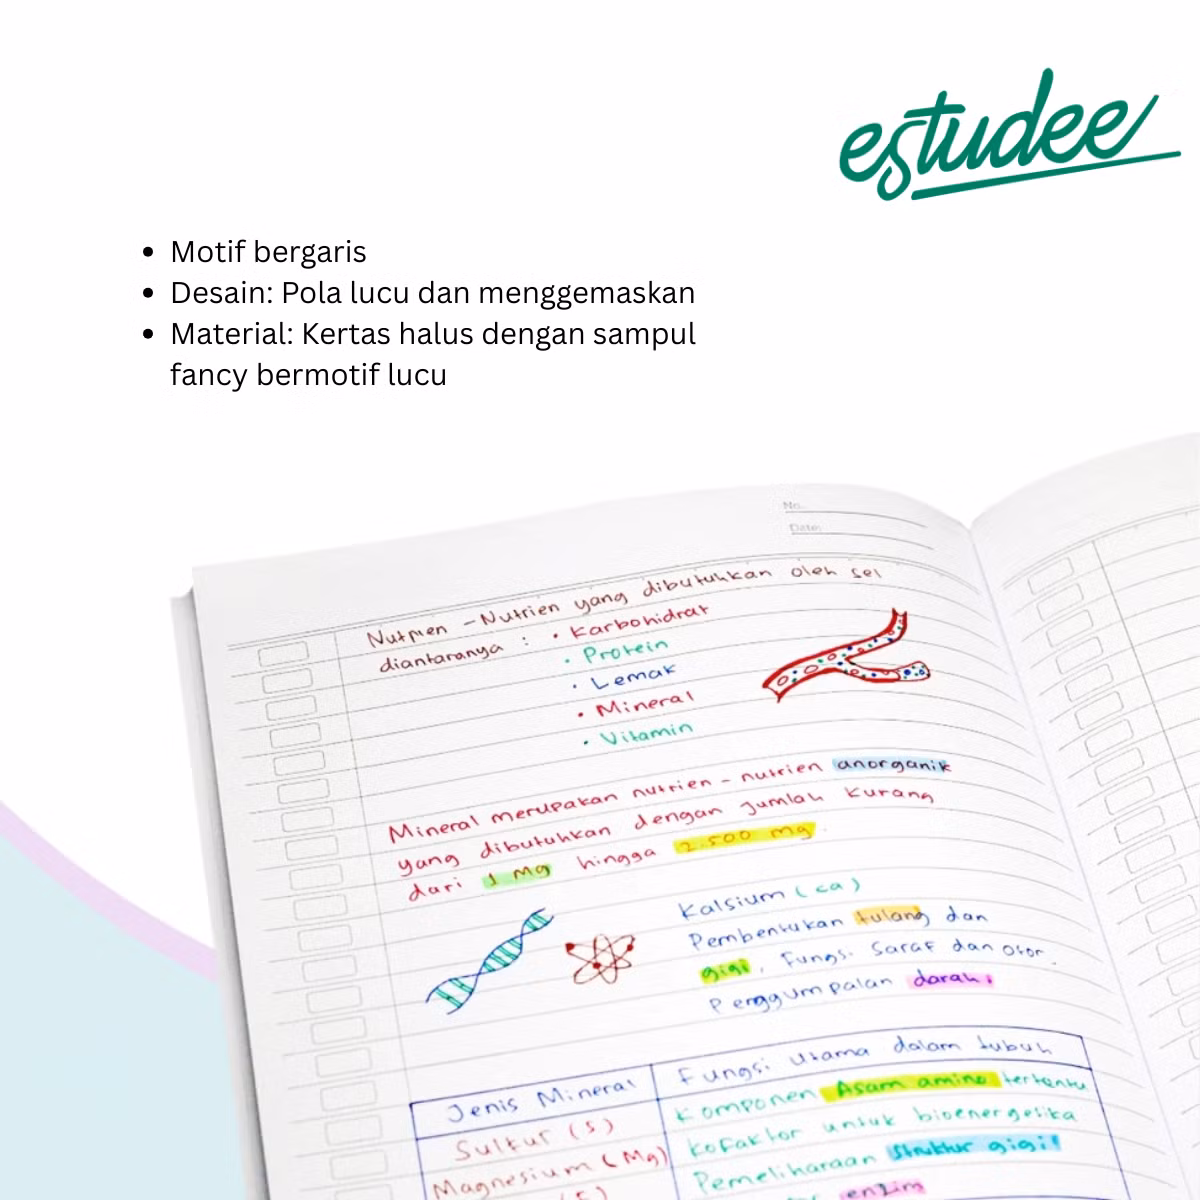 estudee
• Motif bergaris
• Desain: Pola lucu dan menggemaskan
• Material: Kertas halus dengan sampul
fancy bermotif lucu
No.
Date:
Nutrien - Nutrien yang dibutuhkan oleh sel
diantaranya : • Karbohidrat
• Protein
• Lemak
• Mineral
• Vitamin
Mineral merupakan nutrien - nutrien anorganik
yang dibutuhkan dengan jumlah kurang
dari 1 Mg hingga 2.500 mg.
Kalsium (ca)
Pembentukan tulang dan
gigi, Fungsi Saraf dan otot.
Penggumpalan darah
Jenis Mineral
Fungsi Utama dalam tubuh
Sulfur (S)
Komponen Asam amino tertentu
Kofaktor untuk bioenergetika
Magnesium (Mg)
Pemeliharaan Struktur gigi
enzim